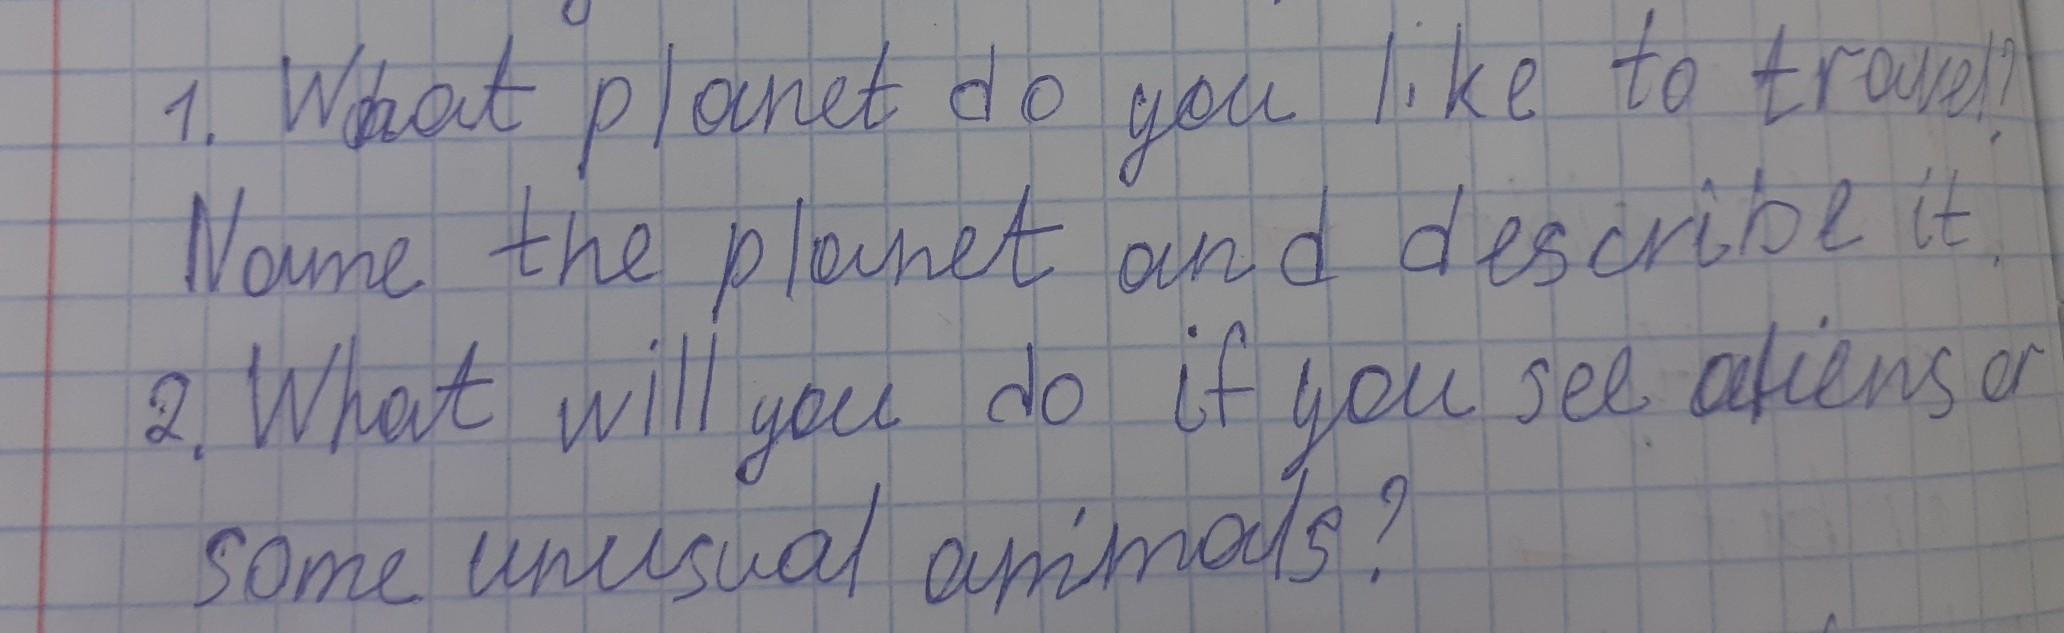 1. What planet do you like to travel?
Name the planet and describe it.
2. What will you do if you see aliens or
some unusual animals?